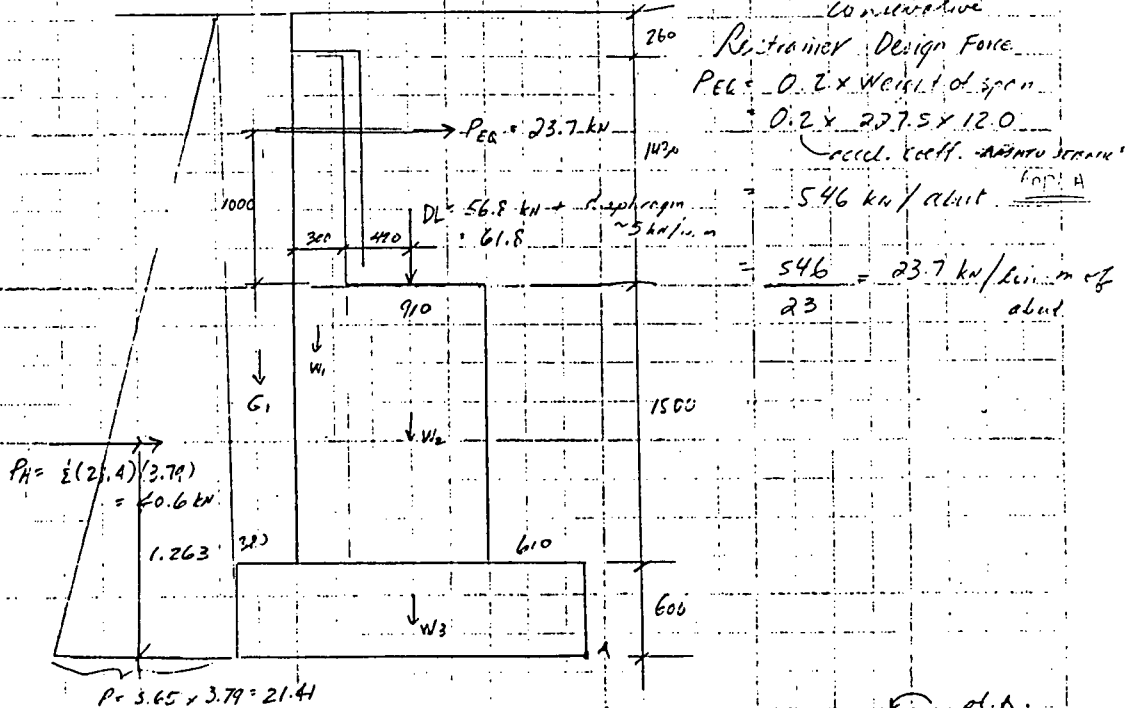 Conservative
Restrainer Design Force
PEQ = 0.2 x Weight of span
= 0.2 x 227.5 x 12.0
accel. coeff. -AASHTO
App. A
= 546 kN / abut
= 546 / 23 = 23.7 kN / lin. m of
abut
260
PEQ = 23.7 kN
1430
1000
DL = 56.8 kN + diaphragm
~5 kN/lin. m
= 61.8
300
910
W1
G1
W2
1500
PH = ½(21.4)(3.79)
= 40.6 kN
1.263
610
W3
600
A
P = 5.65 x 3.79 = 21.41